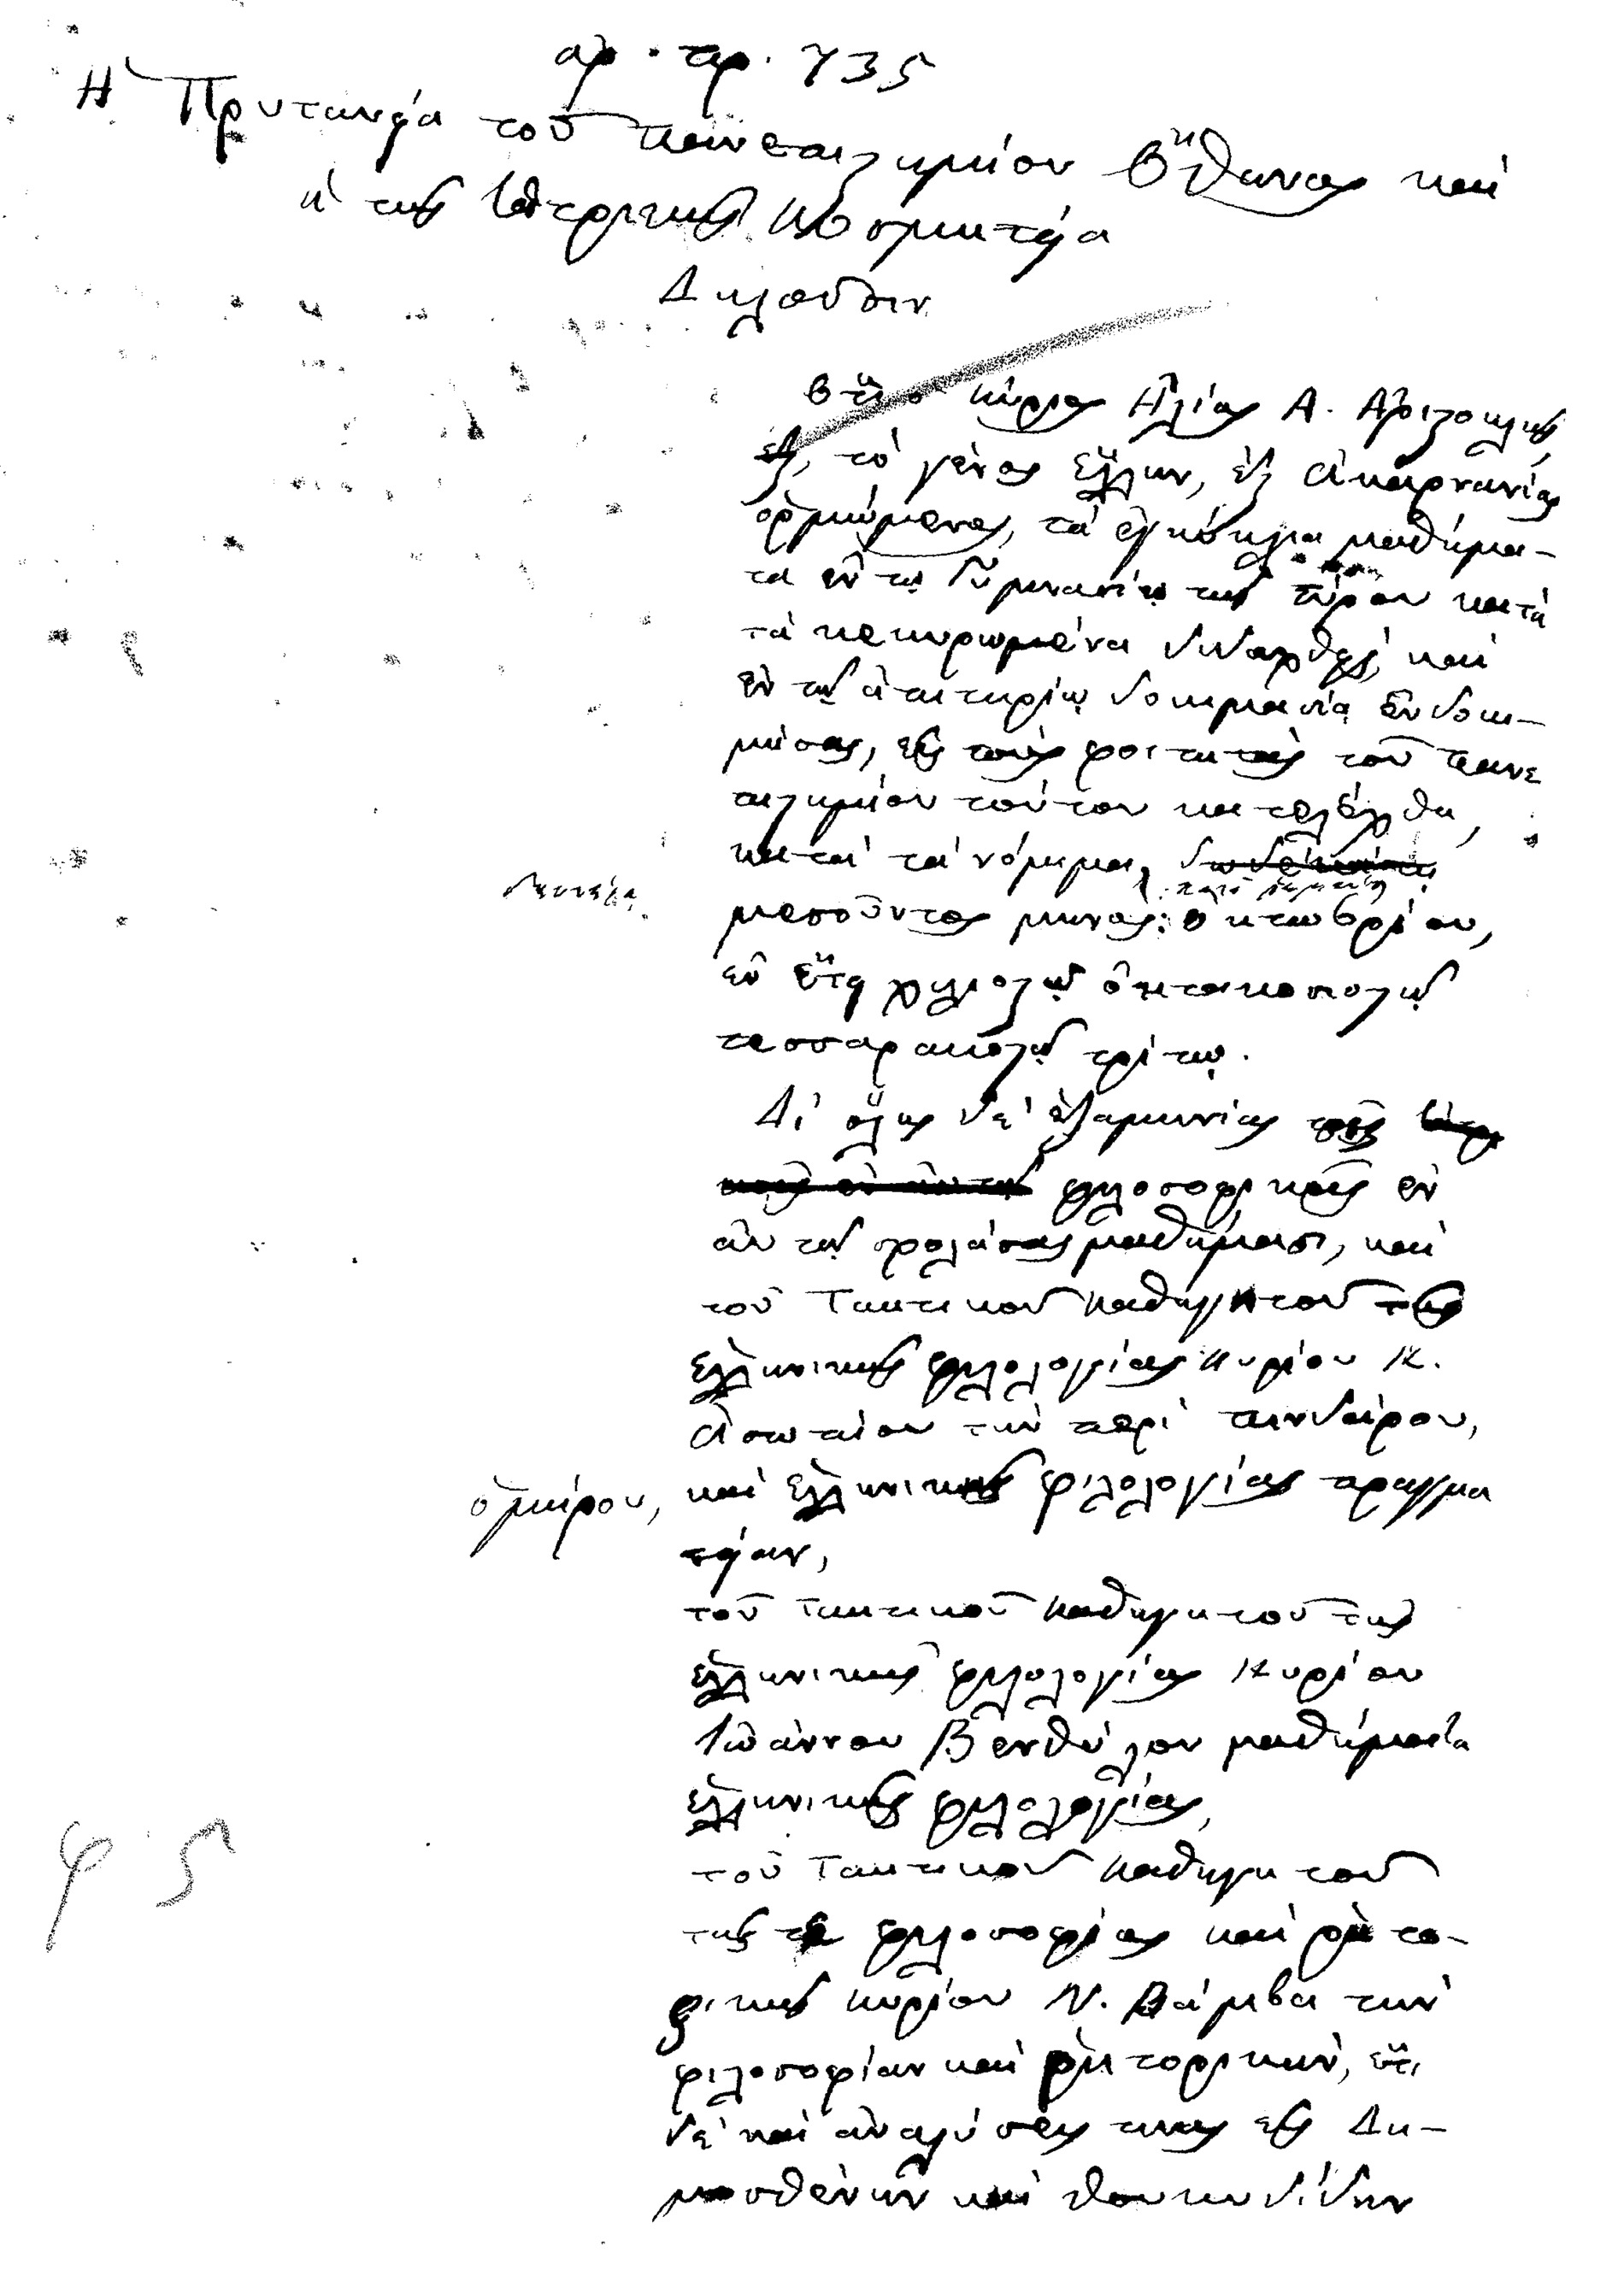 ἀρ. πρ. 735
Ἡ Πρυτανεία τοῦ πανεπιστημίου Ὄθωνος καὶ
ἡ τῆς Ἰατρικῆς Κοσμητεία
Δηλοῦσιν
Ὅτι ὁ κύριος Ἠλίας Α. Ἀριστοκλῆς
τὸ γένος Ἕλλην, ἐξ Ἀκαρνανίας
ὁρμώμενος, τὰ ἐγκύκλια μαθήμα-
τα ἐν τῷ Γυμνασίῳ τῆς κατὰ
τὰ κεκυρωμένα διδαχθεὶς, καὶ
ἐν τῷ ἀπιτηρίῳ δοκιμασίᾳ εὐδοκι-
μήσας, εἰς τοὺς φοιτητὰς τοῦ Πανε
πιστημίου τούτου κατελέχθη,
κατὰ τὰ νόμιμα,
μεσοῦντος μηνὸς ὀκτωβρίου,
ἐν ἔτει χιλιοστῷ ὀκτακοσιοστῷ
τεσσαρακοστῷ τρίτῳ.
Δι' ὅλης δὲ ἑξαμηνίας τοῖς
φιλοσοφικοῖς ἐν
αὐτῷ σχολάσας μαθήμασι, καὶ
τοῦ Τακτικοῦ καθηγητοῦ τῆς
ἑλληνικῆς φιλολογίας κυρίου Κ.
Ἀσωπίου τὴν περὶ Πινδάρου,
ὁμήρου, καὶ ἑλληνικῆς φιλολογίας πραγμα
τείαν,
τοῦ τακτικοῦ καθηγητοῦ τῆς
ἑλληνικῆς φιλολογίας Κυρίου
Ἰωάννου Βενθύλου μαθήματα
ἑλληνικῆς φιλολογίας,
τοῦ Τακτικοῦ καθηγητοῦ
τῆς φιλοσοφίας καὶ ῥητο-
ρικῆς κυρίου Ν. Βάμβα τὴν
φιλοσοφίαν καὶ ῥητορικήν, ἔτι
δὲ καὶ ἀναλύσεις τινὰς εἰς Δη-
μοσθένην καὶ Θουκυδίδην
φ. 5